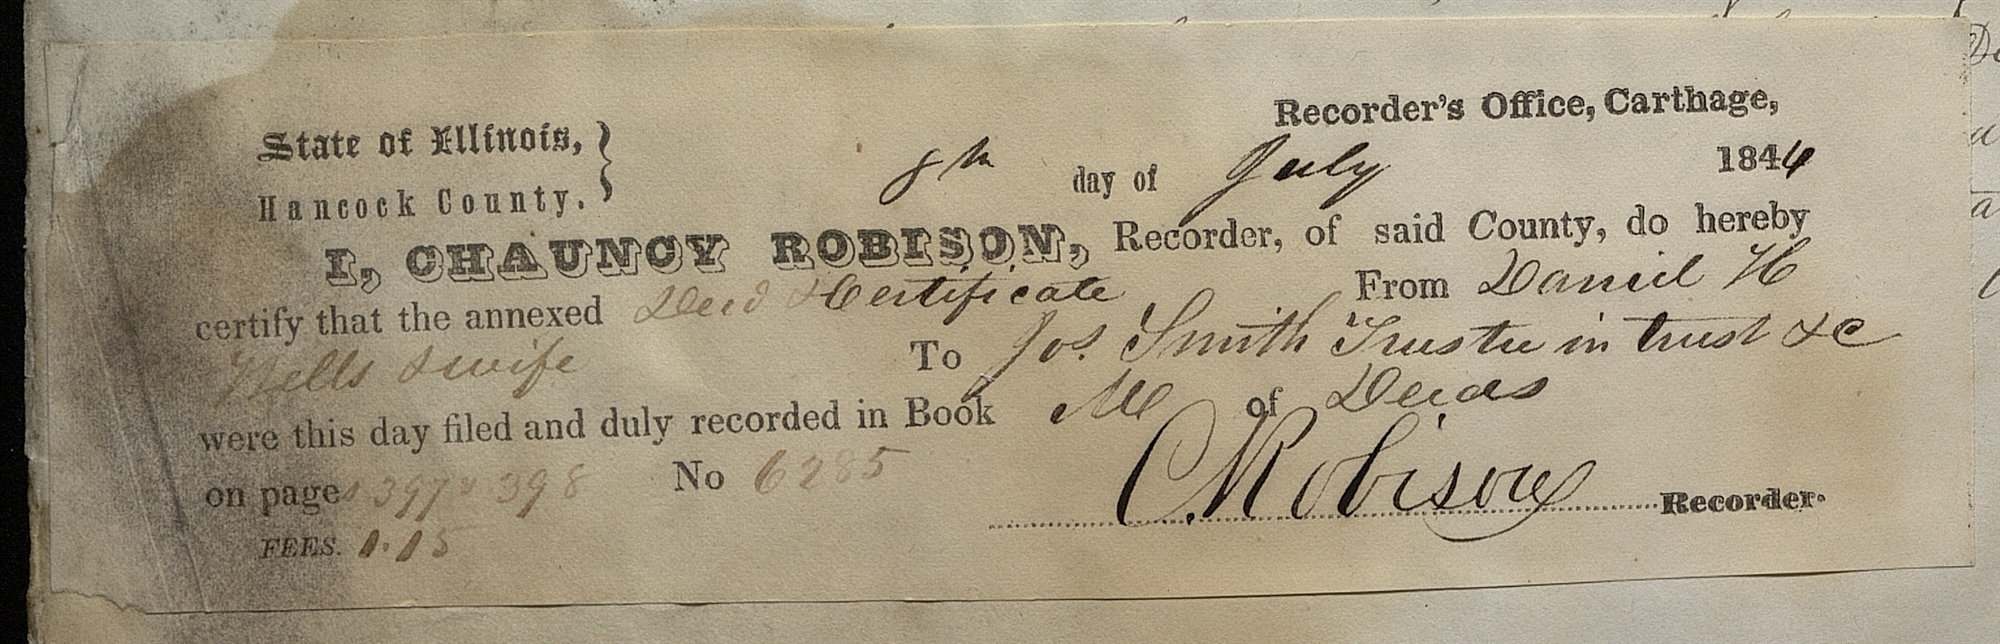 Recorder's Office, Carthage,
State of Illinois, }
Hancock County. }
8th day of July 1844
I, CHAUNCY ROBISON, Recorder, of said County, do hereby
certify that the annexed Deed & Certificate From Daniel H
Wells & wife To Jos. Smith Trustee in trust &c
were this day filed and duly recorded in Book M of Deeds
on pages 397 & 398 No 6285
C. Robison Recorder.
FEES. 1.15